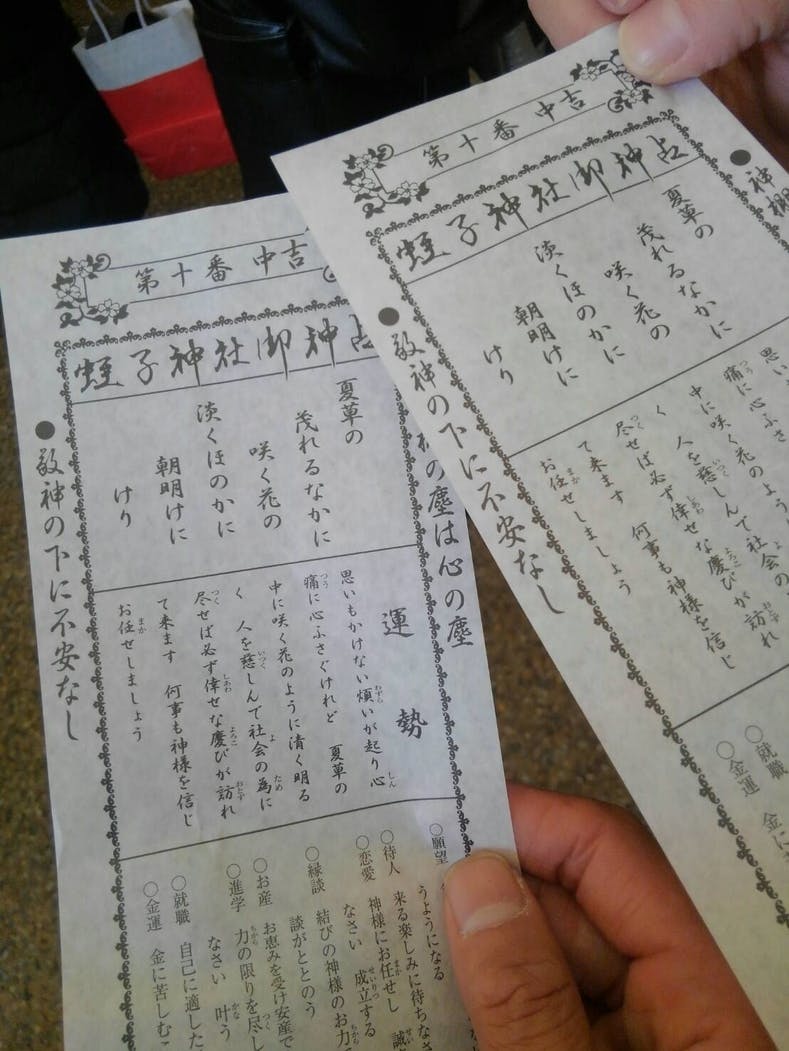 第十番 中吉
蛭子神社御神占
夏草の
茂れるなかに
咲く花の
淡くほのかに
朝明けに
けり
の塵は心の塵
敬神の下に不安なし
運勢
思いもかけない煩いが起り心
痛に心ふさぐけれど 夏草の
中に咲く花のように清く明る
く 人を慈しんで社会の為に
尽せば必ず倖せな慶びが訪れ
て来ます 何事も神様を信じ
お任せしましょう
○願望
うようになる
○待人 来る楽しみに待ちなさ
○恋愛 神様にお任せし 誠
なさい 成立する
○縁談 結びの神様のお力
談がととのう
○お産 お恵みを受け安産で
○進学 力の限りを尽し
なさい 叶う
○就職 自己に適した
○金運 金に苦しむこ
第十番 中吉
蛭子神社御神占
神棚
夏草の
茂れるなかに
咲く花の
淡くほのかに
朝明けに
けり
敬神の下に不安なし
思い
痛に心ふさ
中に咲く花のよう
く 人を慈しんで社会の
尽せば必ず倖せな慶びが訪れ
て来ます 何事も神様を信じ
お任せしましょう
○就職
○金運 金に